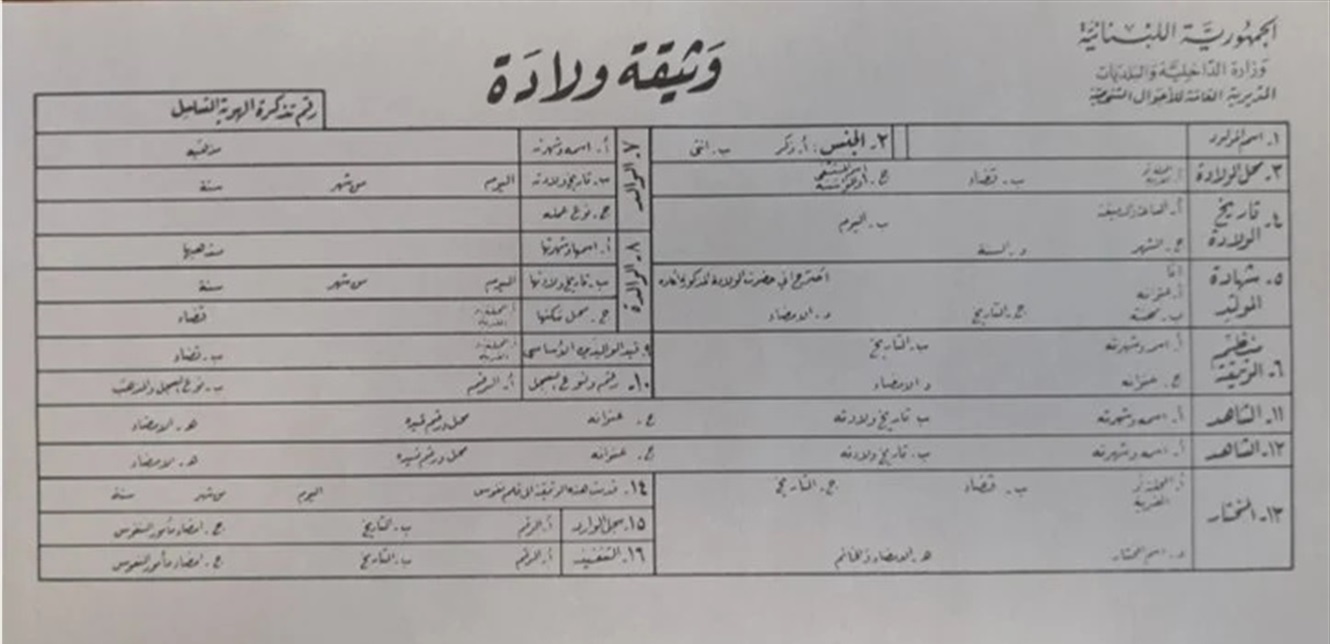 الجمهورية اللبنانية
وزارة الداخلية والبلديات
المديرية العامة للأحوال الشخصية
وثيقة ولادة
رقم تذكرة الهوية التسلسل
١. اسم المولود
٢. الجنس: أ. ذكر ب. انثى
٣. محل الولادة أ. المحلة أو القرية ب. قضاء ج. اسم المستشفى
٤. تاريخ الولادة أ. الساعة والدقيقة ب. اليوم
ج. الشهر د. السنة
٥. شهادة المولد انا اصرح اني حضرت الولادة المذكورة
أ. عنوانه
ب. مهنته ج. التاريخ د. الامضاء
٦. منظم الوثيقة أ. اسمه وشهرته ب. التاريخ
ج. عنوانه د. الامضاء
٧. الوالد أ. اسمه وشهرته مذهبه
ب. تاريخ ولادته اليوم من شهر سنة
ج. نوع عمله
٨. الوالدة أ. اسمها وشهرتها مذهبها
ب. تاريخ ولادتها اليوم من شهر سنة
ج. محل سكنها أ. المحلة أو القرية قضاء
٩. قيد الوالدين الأساسي أ. المحلة أو القرية ب. قضاء
١٠. رقم ونوع السجل أ. الرقم ب. نوع السجل والمذهب
١١. الشاهد أ. اسمه وشهرته ب. تاريخ ولادته ج. عنوانه محل ورقم قيده هـ. الامضاء
١٢. الشاهد أ. اسمه وشهرته ب. تاريخ ولادته ج. عنوانه محل ورقم قيده هـ. الامضاء
١٣. المختار أ. المحلة أو القرية ب. قضاء ج. التاريخ
د. اسم المختار هـ. الامضاء والخاتم
١٤. قدمت هذه الوثيقة الى قلم نفوس اليوم من شهر سنة
١٥. سجل الوارد أ. الرقم ب. التاريخ ج. امضاء مأمور النفوس
١٦. التنفيذ أ. الرقم ب. التاريخ ج. امضاء مأمور النفوس